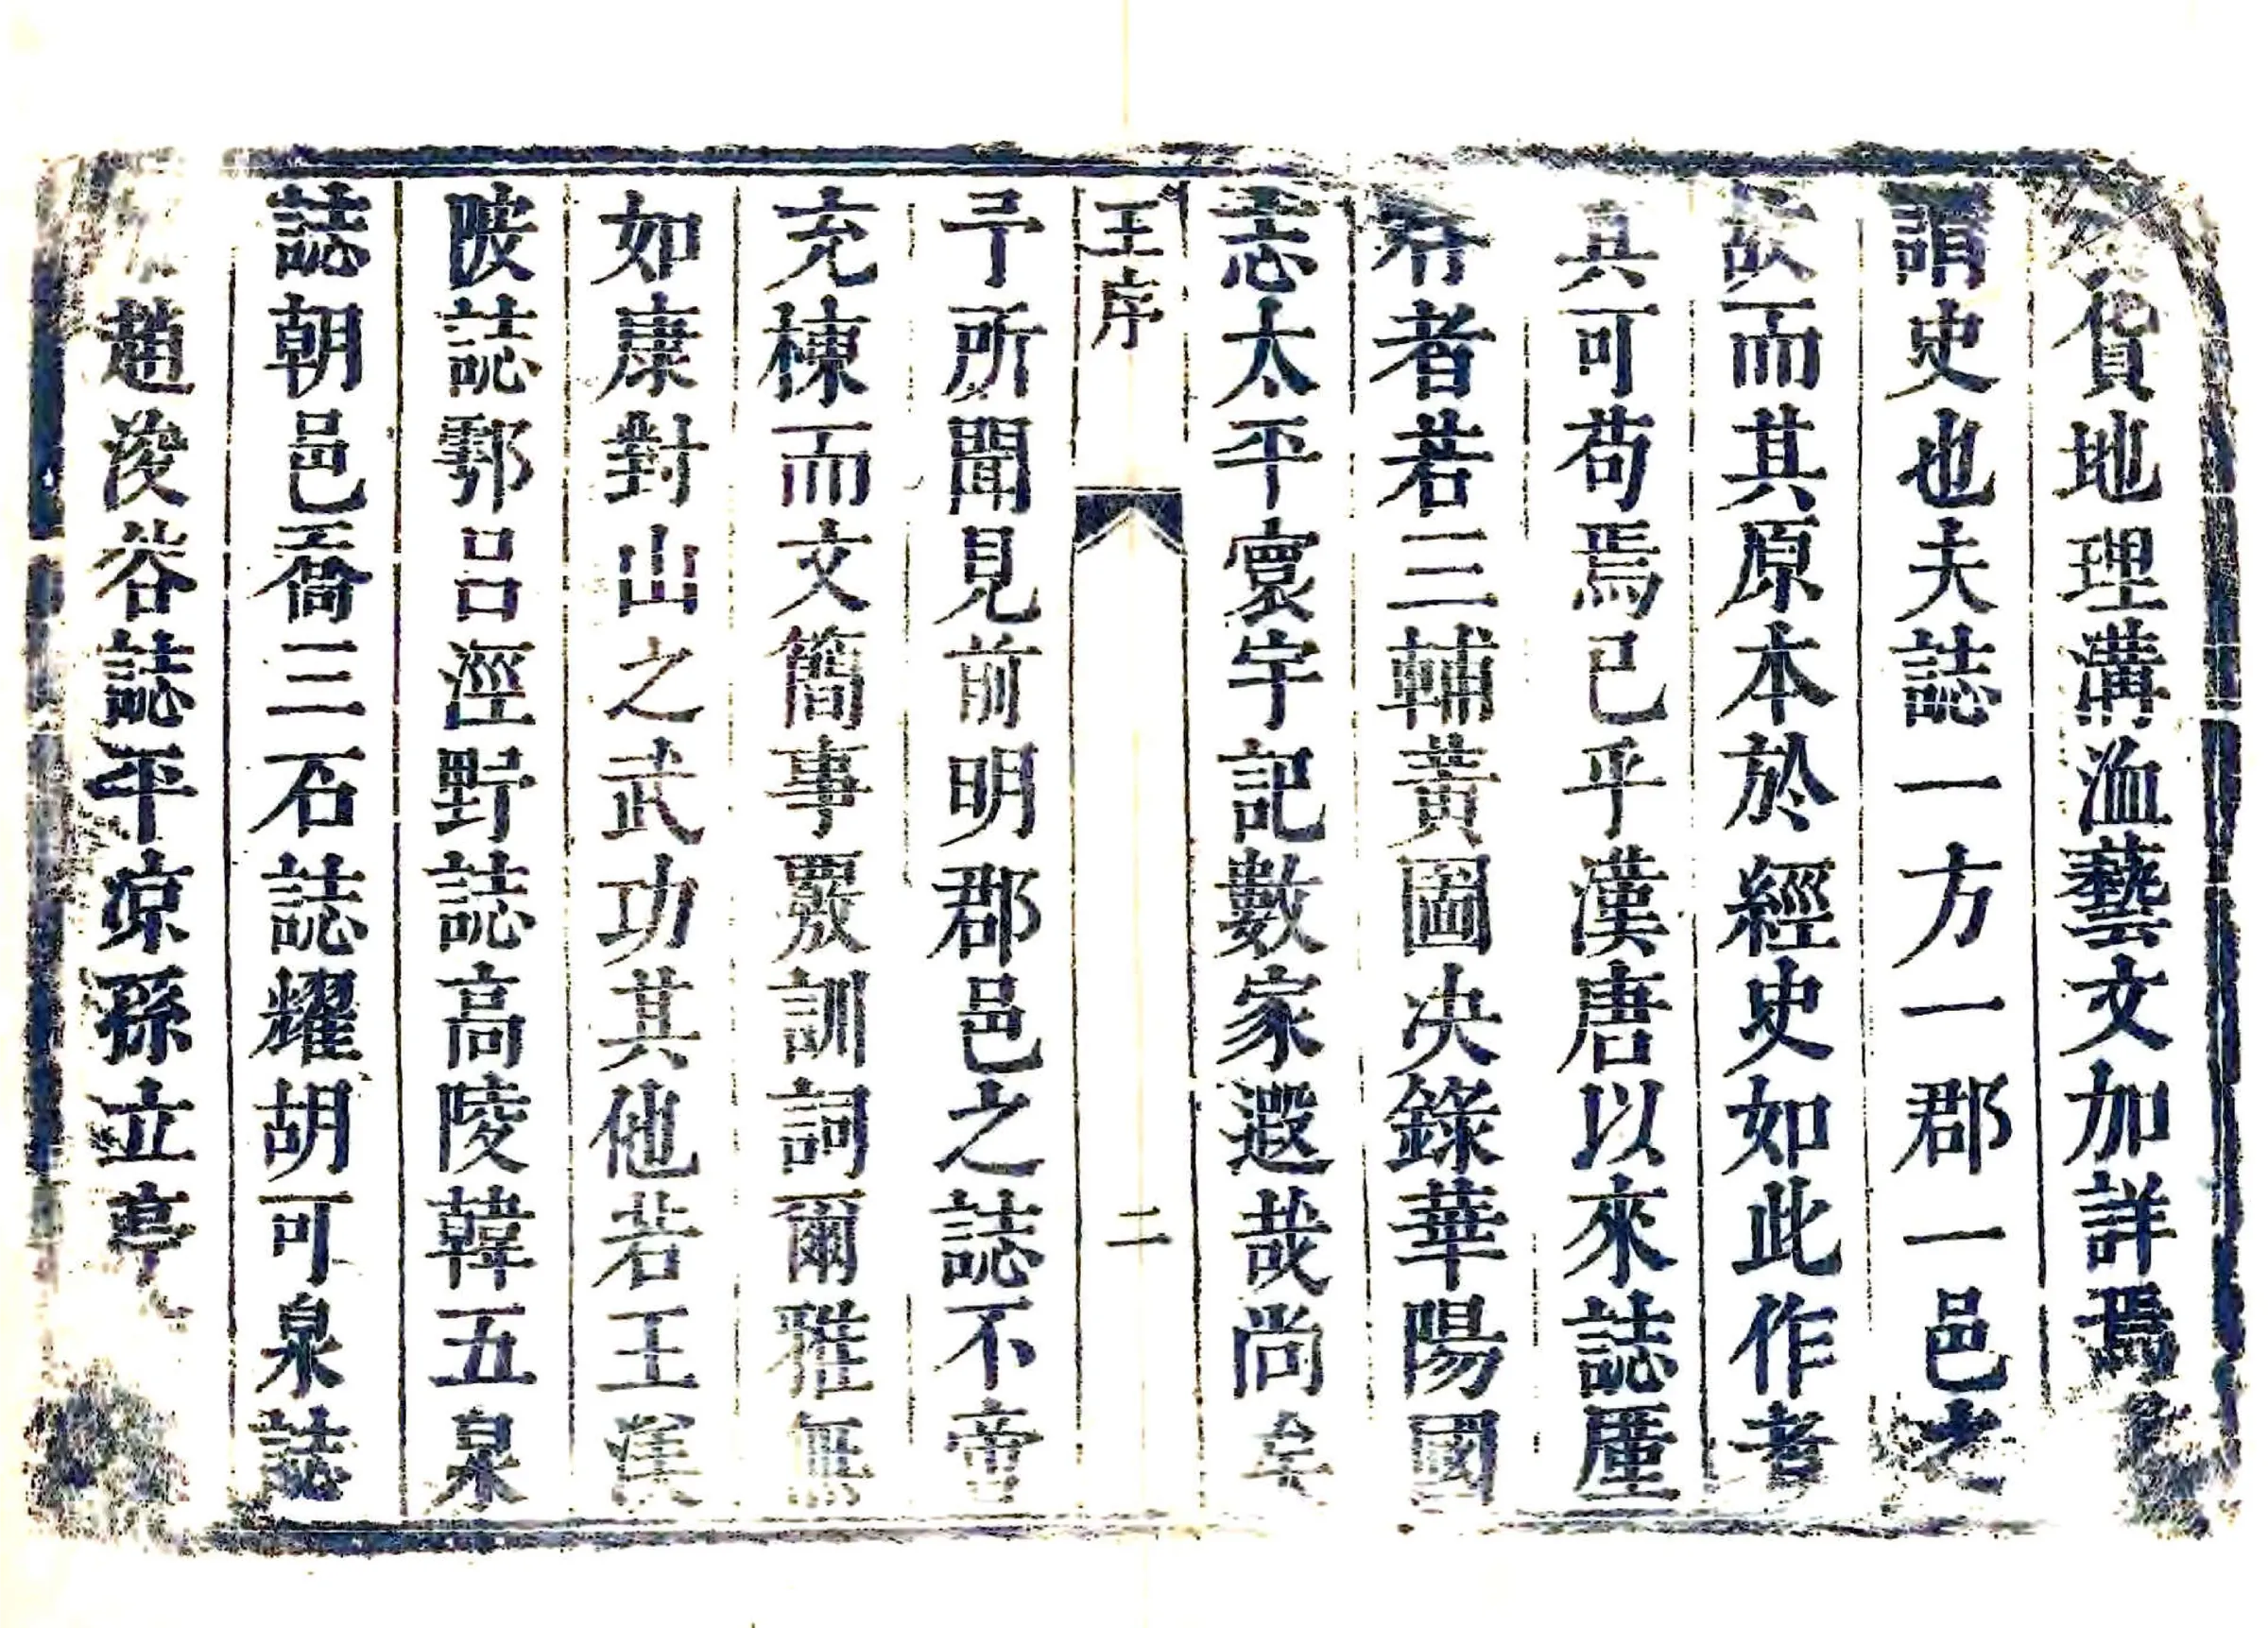 貨地理溝洫藝文加詳焉
謂史也夫誌一方一郡一邑之
故而其原本於經史如此作者
其可苟焉已乎漢唐以來誌厪
存者若三輔黃圖決錄華陽國
志太平寰宇記數家遐哉尚矣
王序
二
予所聞見前明郡邑之誌不啻
充棟而文簡事覈訓詞爾雅無
如康對山之武功其他若王渼
陂誌鄠呂涇野誌高陵韓五泉
誌朝邑喬三石誌耀胡可泉誌
趙浚谷誌平凉孫立亭